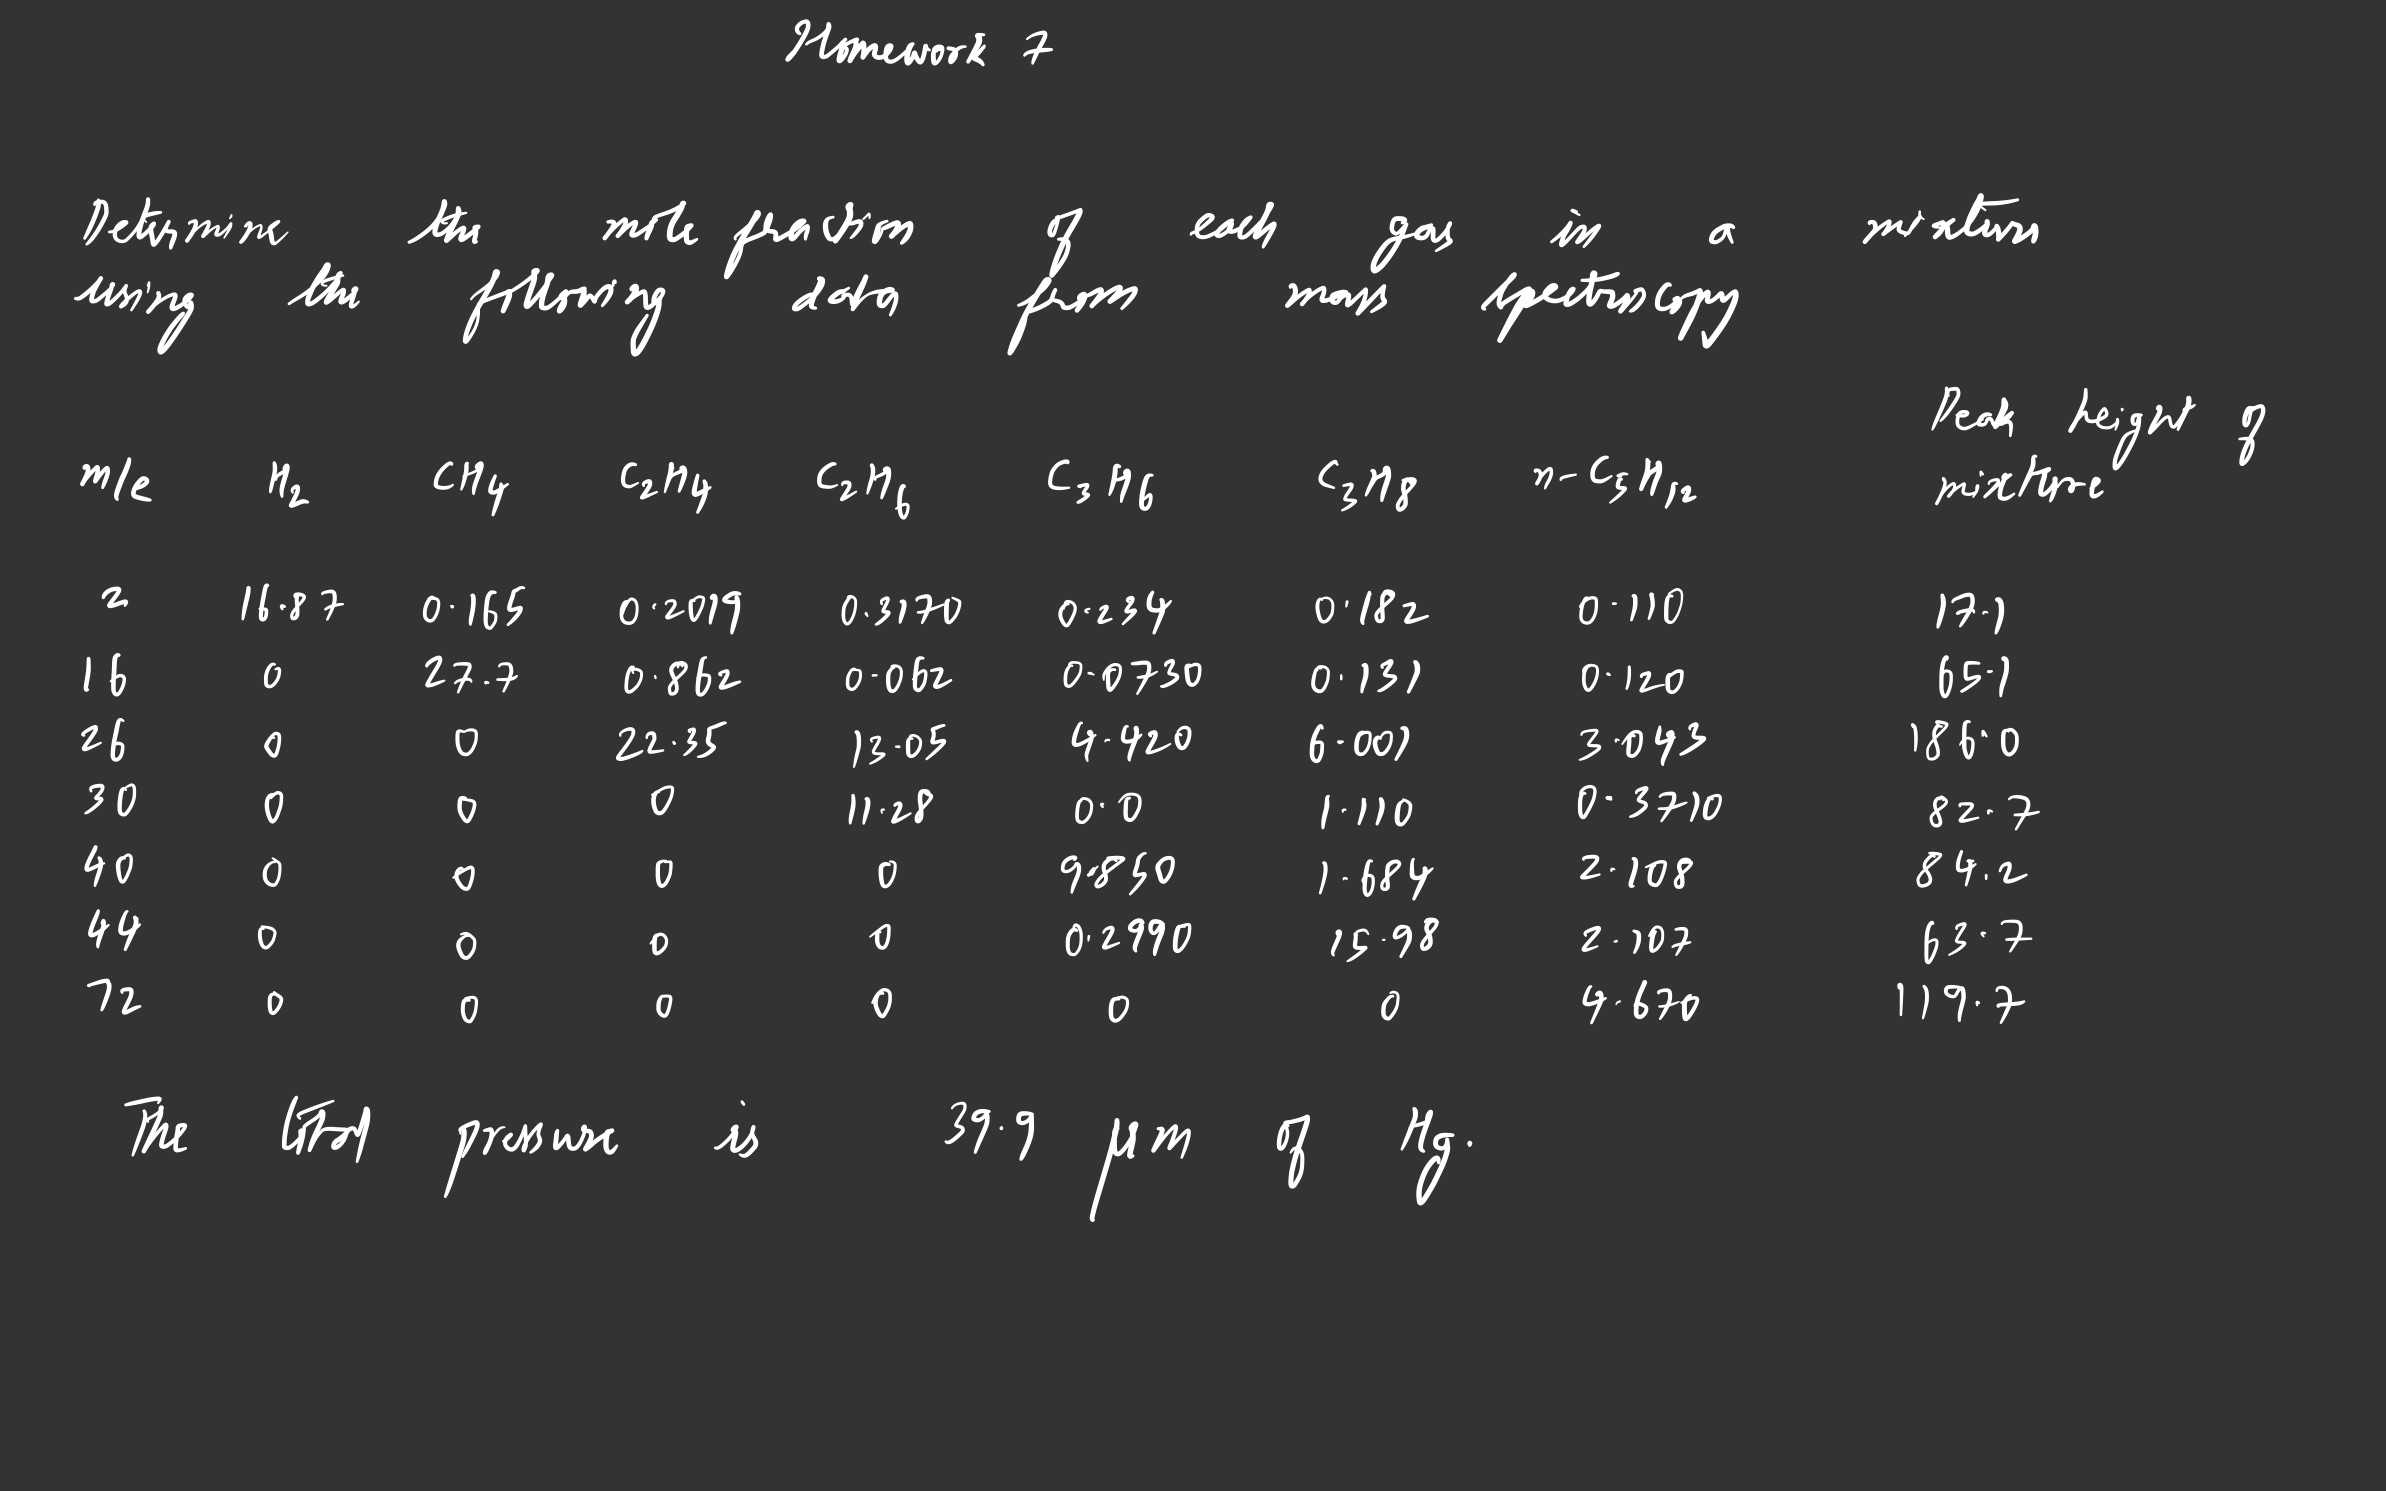 Homework 7
Determine the mole fraction of each gas in a mixture
using the following data from mass spectroscopy
Peak height of
m/e H2 CH4 C2H4 C2H6 C3H6 C3H8 n-C5H12 mixture
2 16.87 0.165 0.2019 0.3170 0.234 0.182 0.110 17.1
16 0 27.7 0.862 0.062 0.0730 0.131 0.120 65.1
26 0 0 22.35 13.05 4.420 6.001 3.043 186.0
30 0 0 0 11.28 0.0 1.110 0.3710 82.7
40 0 0 0 0 9.850 1.684 2.108 84.2
44 0 0 0 0 0.2990 15.98 2.107 63.7
72 0 0 0 0 0 0 4.670 119.7
The total pressure is 39.9 μm of Hg.